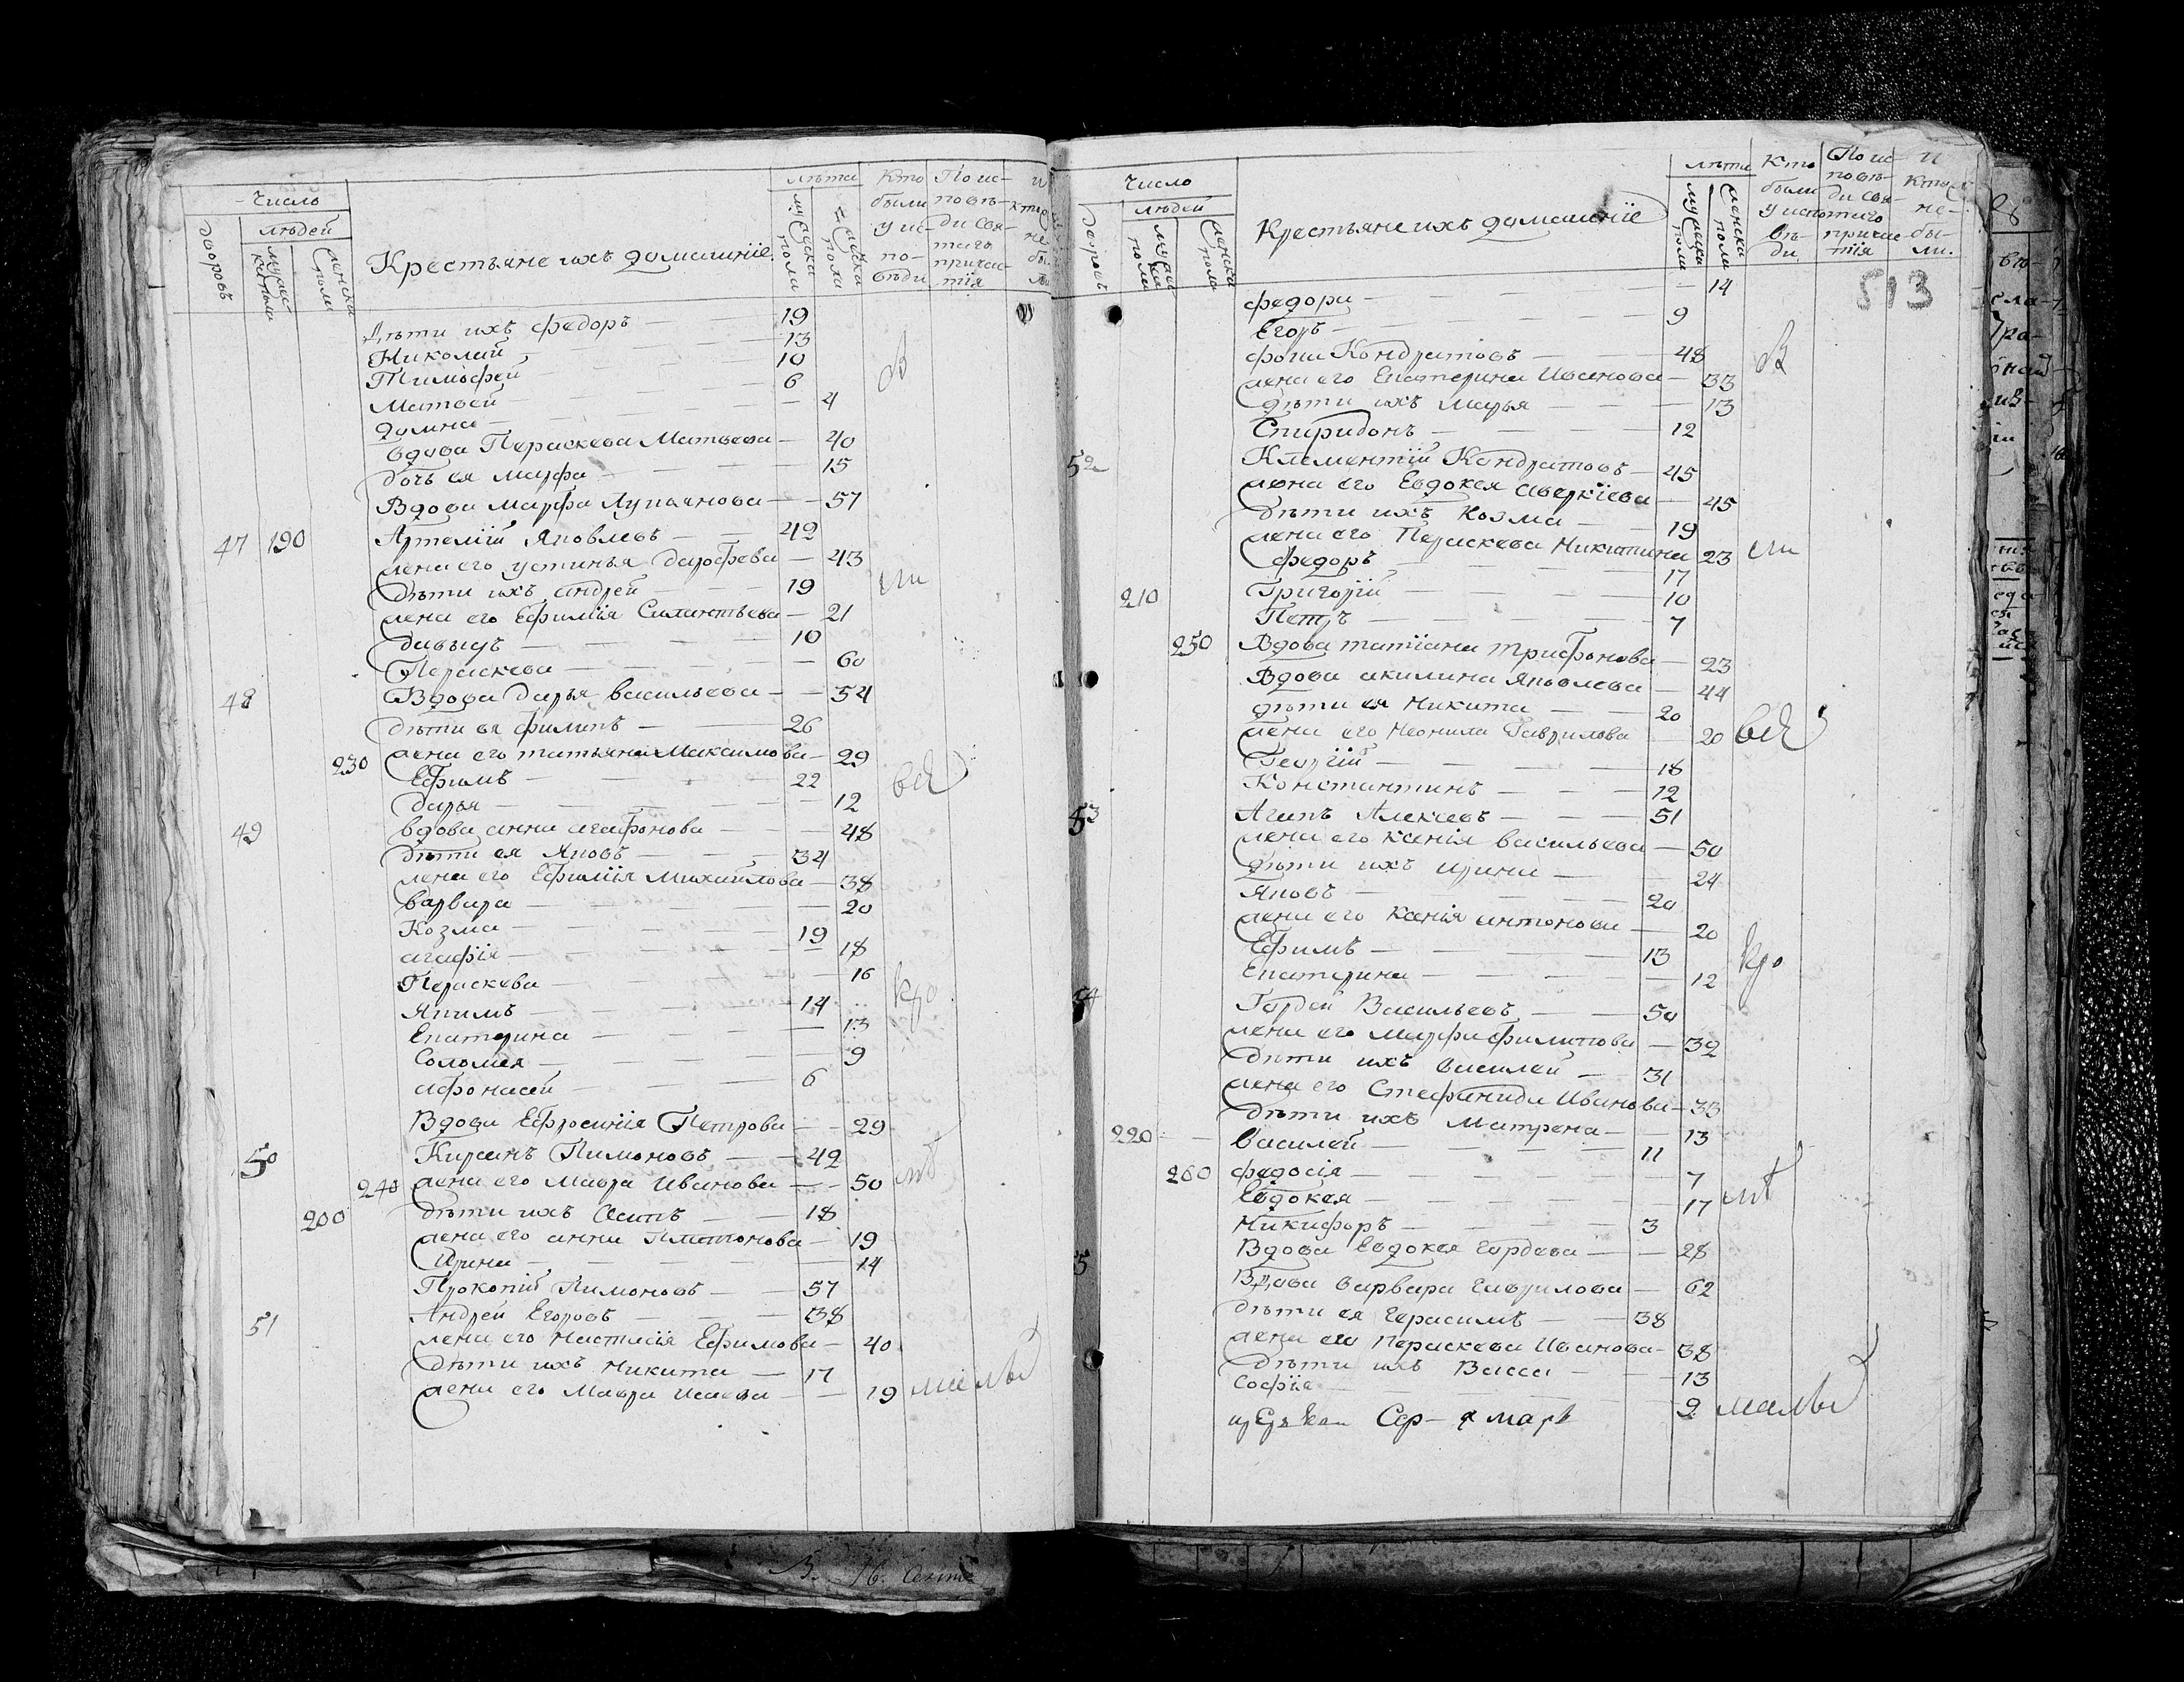 Число
людей
дворовъ
мужеска пола
женска пола
Крестьяне ихъ домашнiе
лѣта
мужеска пола
женска пола
Кто были у исповѣди
По исповѣди святаго причастiя
и кто не были
Дѣти ихъ Федоръ — 19
Николай — 13
Тимофей — 10
Матвей — 6
Домна — 4
Вдова Параскева Матвева — 40
Дочь ея Марфа — 15
Вдова Марфа Лукьянова — 57
47 190 Артемiй Яковлевъ — 42
жена его Устинья Дарофева — 43
Дѣти ихъ Андрей — 19
жена его Ефимiя Силантьева — 21
Давыдъ — 10
Параскева — 60
48 Вдова Дарья Васильева — 54
дѣти ея Филипъ — 26
230 жена его Татьяна Максимова — 29
Ефимъ — 22
Дарья — 12
49 Вдова Анна Агафонова — 48
Дѣти ея Яковъ — 34
жена его Ефимiя Михайлова — 38
Варвара — 20
Козма — 19
Агафiя — 18
Параскева — 16
Якимъ — 14
Екатерина — 13
Соломея — 9
Афонасей — 6
Вдова Ефросинiя Петрова — 29
50 Кирсанъ Пимоновъ — 42
240 жена его Мавра Иванова — 50
200 Дѣти ихъ Осипъ — 18
жена его Анна Платонова — 19
Ирина — 14
Прокопiй Пимоновъ — 57
51 Андрей Егоровъ — 38
жена его Настасiя Ефимова — 40
Дѣти ихъ Никита — 17
жена его Мавра Исаева — 19
Число
людей
дворовъ
мужеска пола
женска пола
Крестьяне ихъ домашнiе
лѣта
мужеска пола
женска пола
Кто были у исповѣди
По исповѣди святаго причастiя
и кто не были.
513
Федора — 14
Егоръ — 9
Фока Кондратовъ — 48
жена его Екатерина Иванова — 33
Дѣти ихъ Марья — 13
Спиридонъ — 12
52 Климентiй Кондратовъ — 45
жена его Евдокея Аверкiева — 45
Дѣти ихъ Козма — 19
жена его Параскева Никитина 23
Федоръ — 17
210 Григорiй — 10
Петръ — 7
250 Вдова Татiана Трифонова — 23
Вдова Акилина Яковлева — 44
дѣти ея Никита — 20
жена его Неонила Гаврилова 20
Георгiй — 18
Константинъ — 12
53 Агапъ Алексевъ — 51
жена его Ксенiя Васильева — 50
Дѣти ихъ Ирина — 24
Яковъ — 20
жена его Ксенiя Антонова — 20
Ефимъ — 13
Екатерина — 12
54 Гордей Васильевъ — 50
жена его Марфа Филипова — 32
Дѣти ихъ Василей — 31
жена его Стефанида Иванова — 33
Дѣти ихъ Матрена — 13
220 Василей — 11
260 Федосiя — 7
Евдокея — 17
Никифоръ — 3
Вдова Евдокея Гордева — 28
5 Вдова Варвара Гаврилова — 62
Дѣти ея Герасимъ — 38
жена его Параскева Иванова — 38
Дѣти ихъ Васса — 13
Софiя — 9